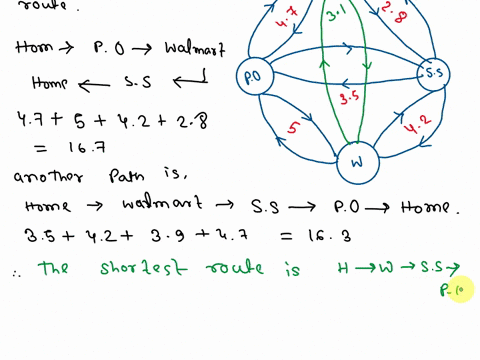 route.
4.7
3.1
2.8
Hom → P.O → Walmart
P.O
S.S
Home ← S.S ←
3.5
4.7 + 5 + 4.2 + 2.8
5
4.2
= 16.7
W
another Path is,
Home → Walmart → S.S → P.O → Home.
3.5 + 4.2 + 3.9 + 4.7 = 16.3
∴ The shortest route is H → W → S.S →
P.O